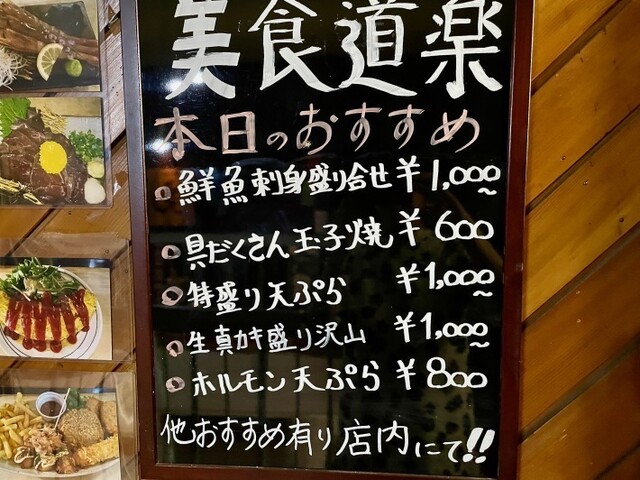 美食道楽
本日のおすすめ
鮮魚刺身盛り合せ ¥1,000~
具だくさん玉子焼 ¥600
特盛り天ぷら ¥1,000~
生真カキ盛り沢山 ¥1,000~
ホルモン天ぷら ¥800
他おすすめ有り店内にて!!